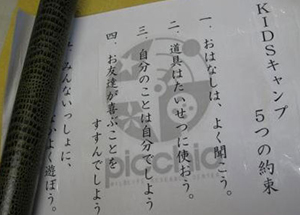 KIDSキャンプ 5つの約束
一、おはなしは、よく聞こう。
二、道具はたいせつに使おう。
三、自分のことは自分でしよう
四、お友達が喜ぶことを
すすんでしよう
みんないっしょに、
なかよく遊ぼう。
picchio